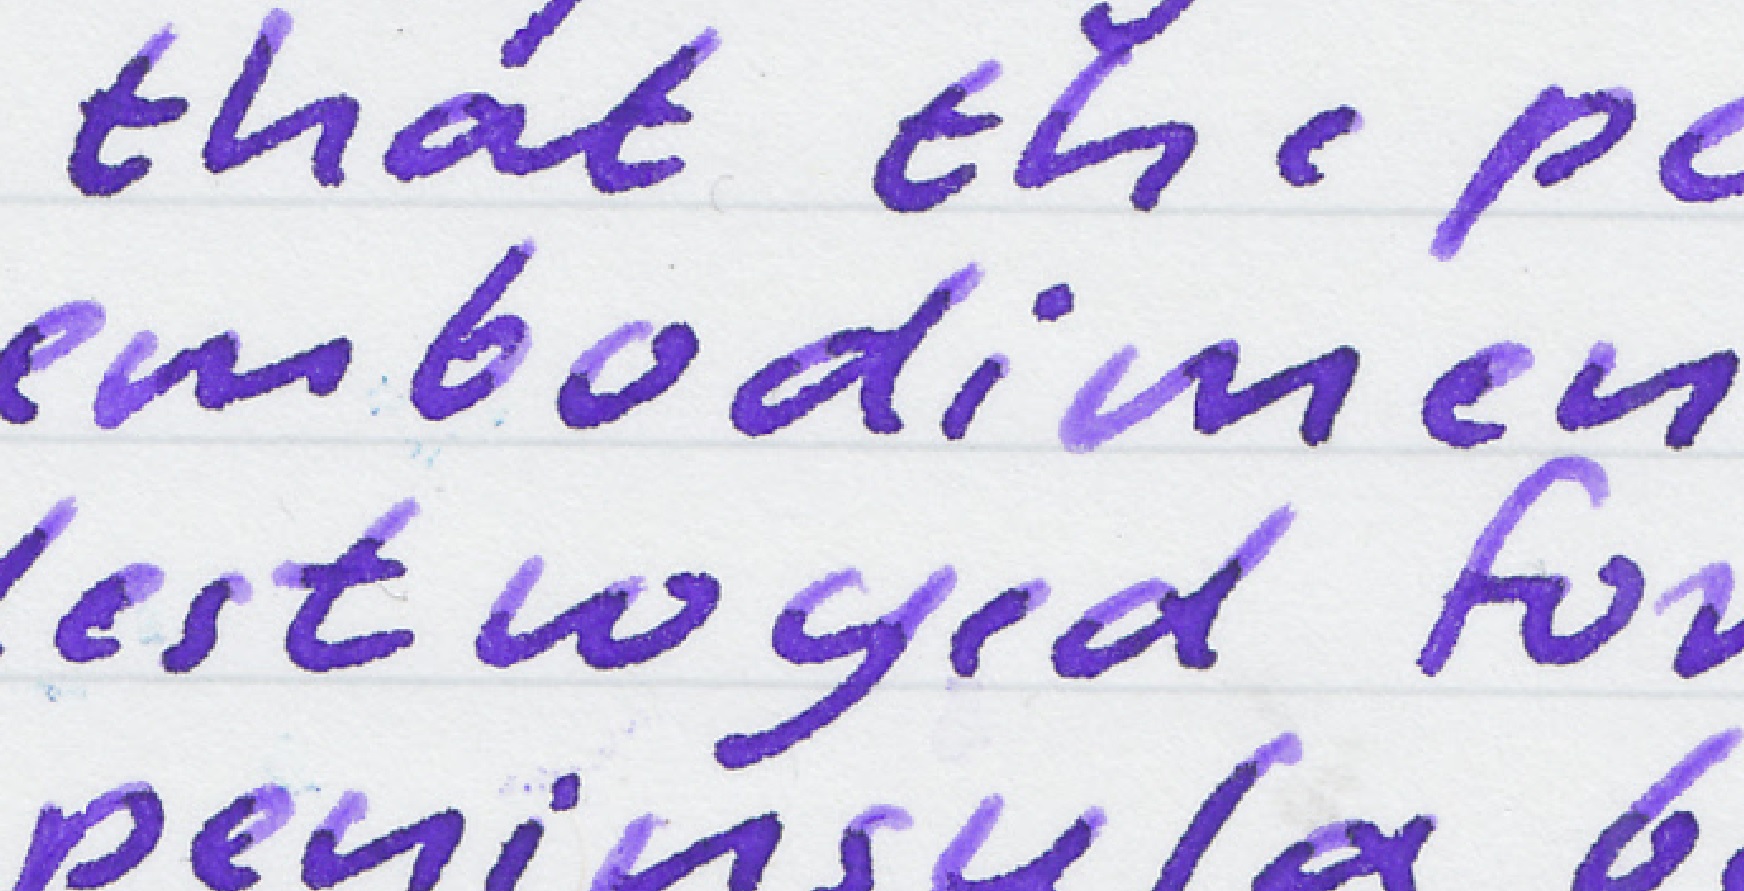 that the
embodimen
destroyed for
peninsula